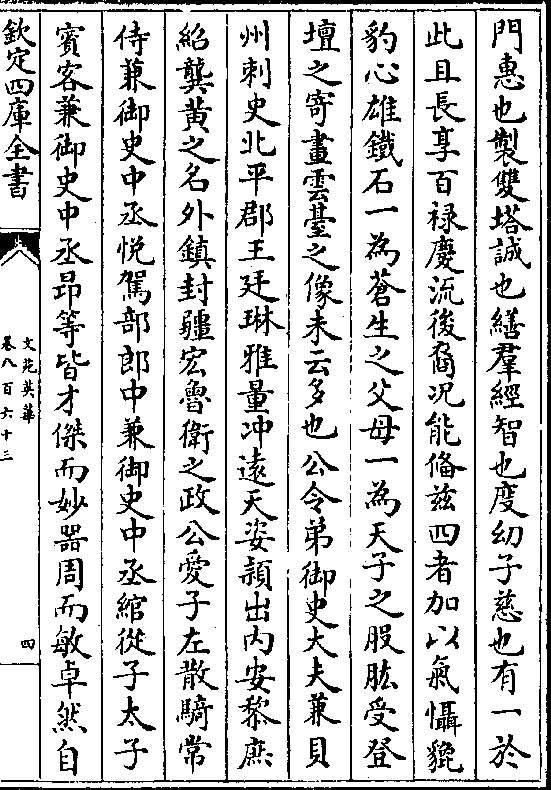 門惠也製雙塔誠也繕羣經智也度幼子慈也有一於
此且長享百禄慶流後裔况能備兹四者加以氣懾貔
豹心雄鐵石一為蒼生之父母一為天子之股肱受登
壇之寄畫雲臺之像未云多也公令弟御史大夫兼貝
州刺史北平郡王廷琳雅量冲遠天姿頴出内安黎庶
紹龔黄之名外鎮封疆宏魯衛之政公愛子左散騎常
侍兼御史中丞悦駕部郎中兼御史中丞綰從子太子
賓客兼御史中丞昂等皆才傑而妙器周而敏卓然自
欽定四庫全書
文苑英華
卷八百六十三
四